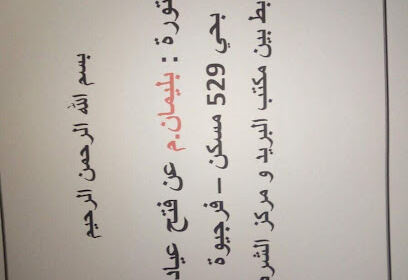 بسم الله الرحمن الرحيم
تورة : بليمان.م عن فتح عياد
بحي 529 مسكن – فرجيوة
بط بين مكتب البريد و مركز الشر